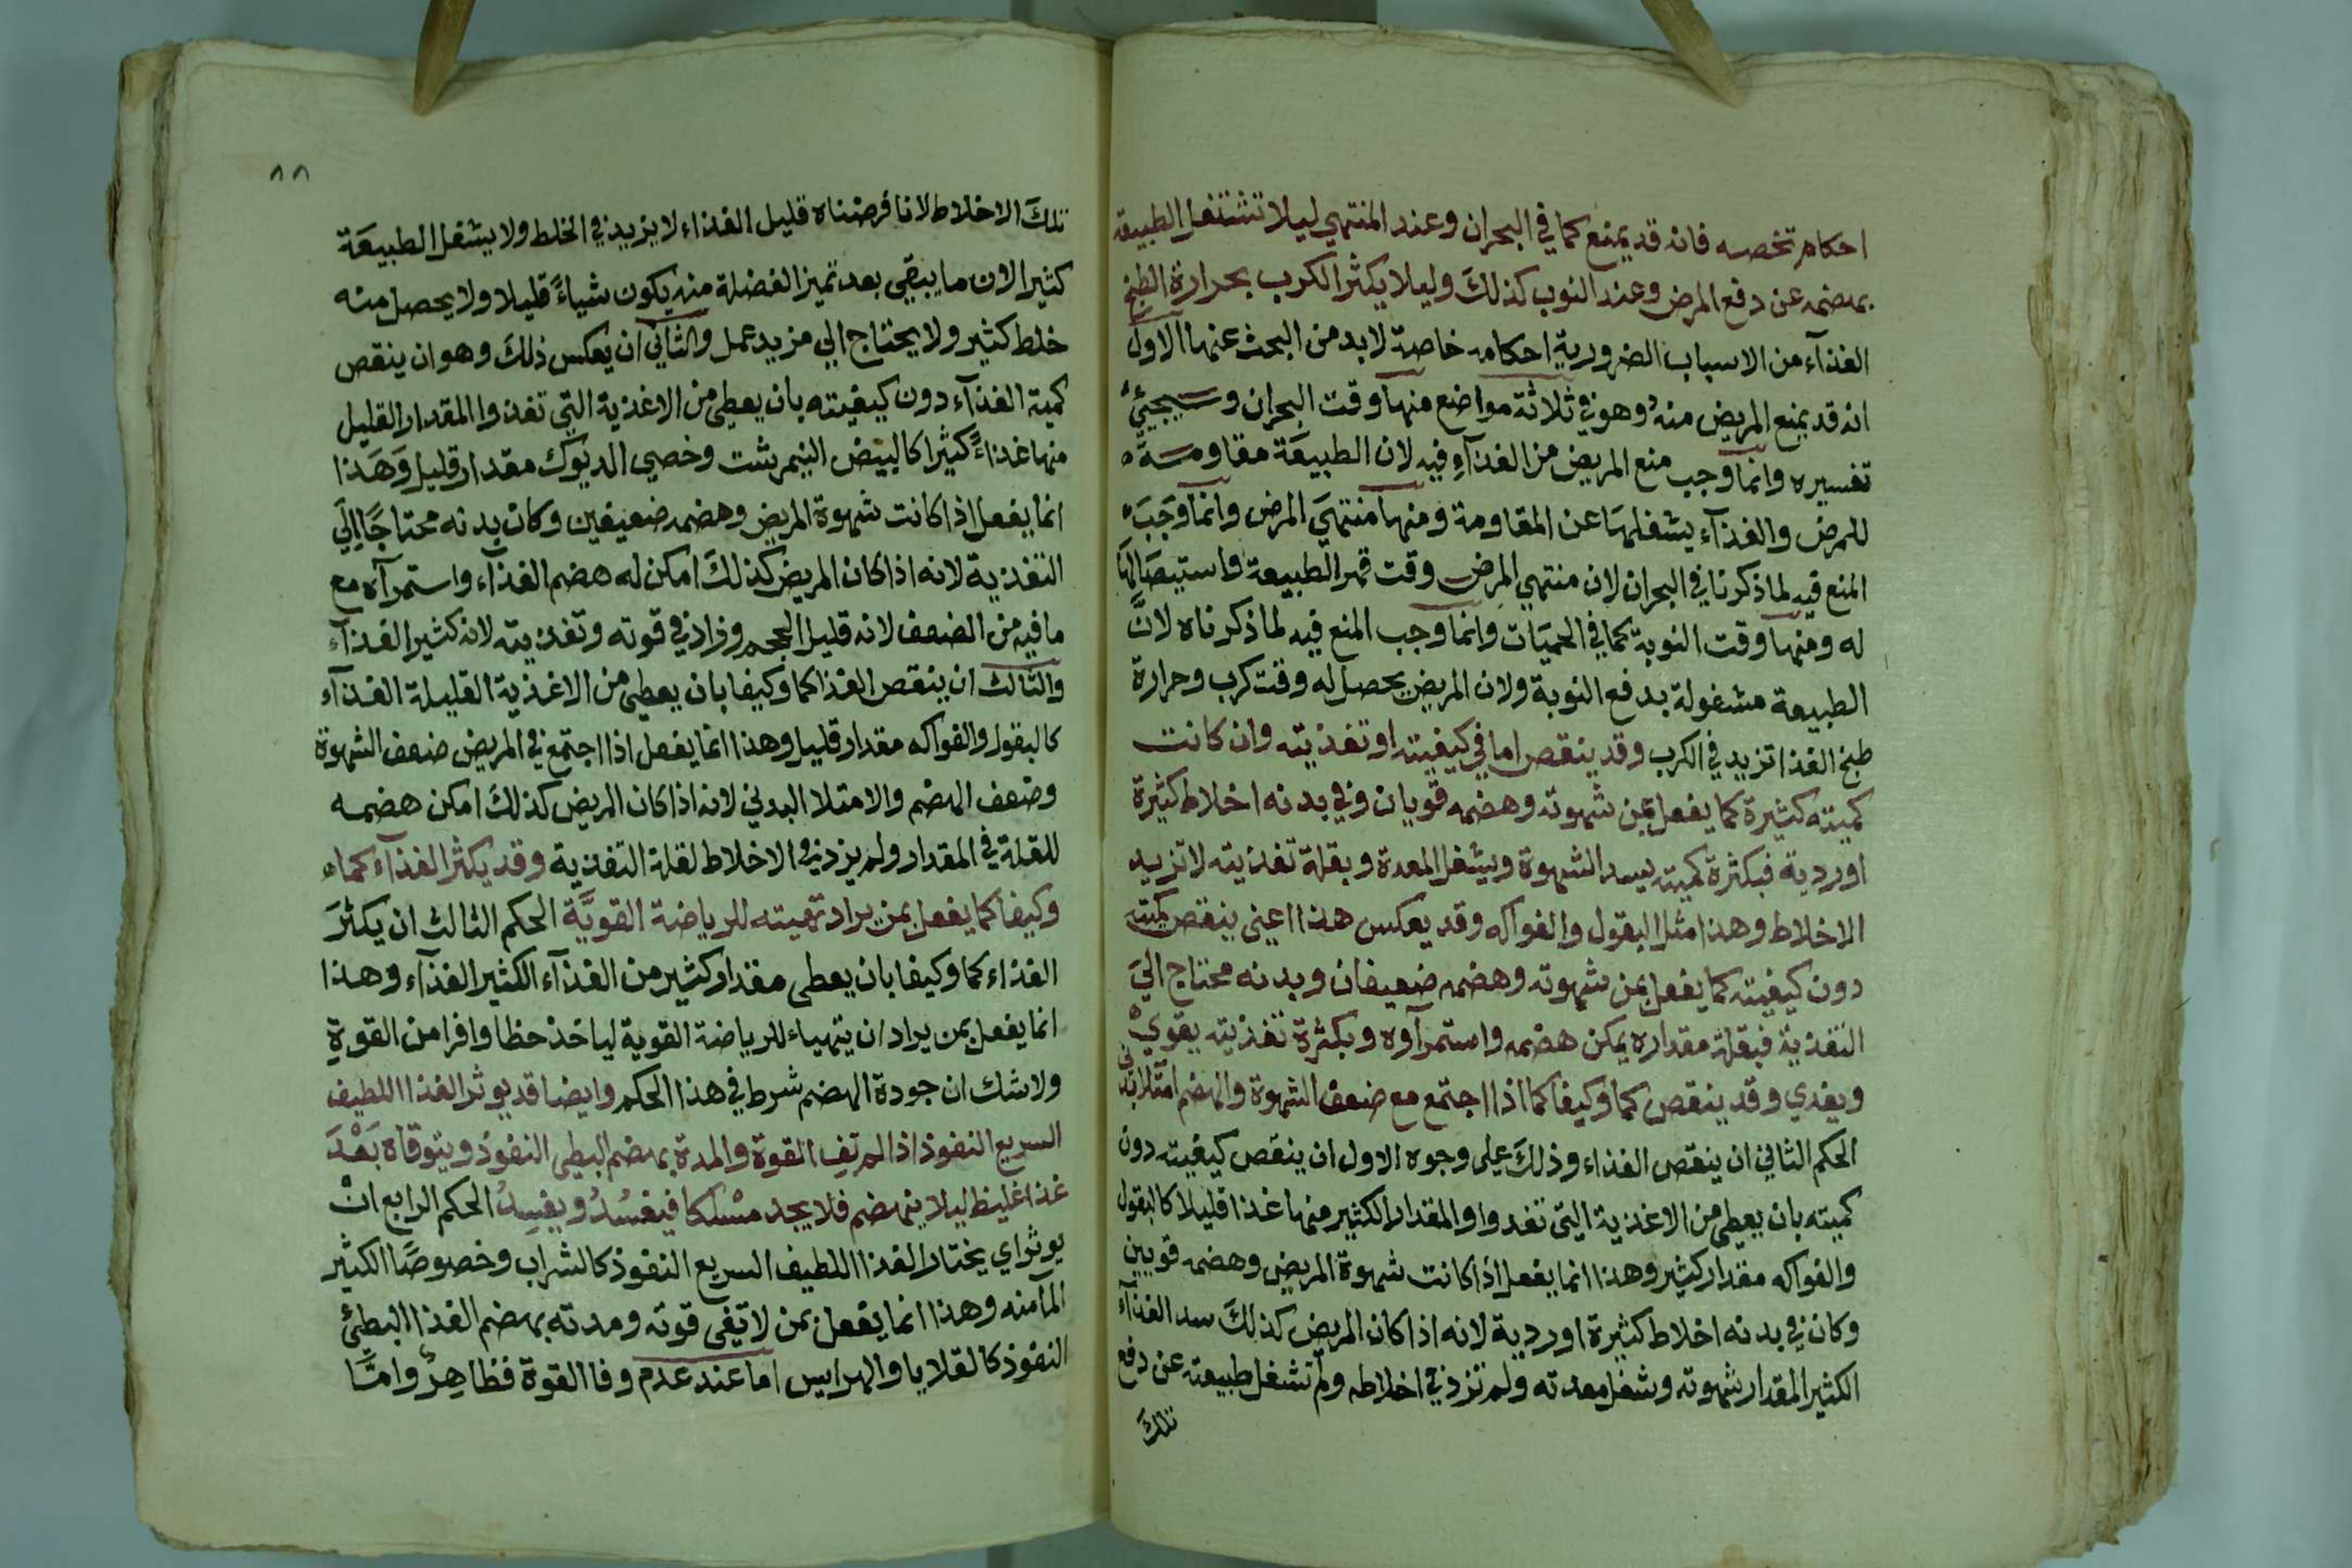 احكام تخصه فانه قد يمنع كما في البحران وعند المنتهي ليلا تشتغل الطبيعة
بهضمه عن دفع المرض وعند النوب كذلك وليلا يكثر الكرب بحرارة الطبخ
الغذآء من الاسباب الضرورية احكامه خاصة لا بد من البحث عنها الاول
انه قد يمنع المريض منه وهو في ثلاثة مواضع منها وقت البحران وسيجيئ
تفسيره وانما وجب منع المريض من الغذآء فيه لان الطبيعة مقاومة
للمرض والغذآء يشغلها عن المقاومة ومنها منتهي المرض وانما وجب
المنع فيه لما ذكرنا في البحران لان منتهي المرض وقت قهر الطبيعة واستيصالها
له ومنها وقت النوبة كما في الحميات وانما وجب المنع فيه لما ذكرناه لان
الطبيعة مشغولة بدفع النوبة ولان المريض يحصل له وقت كرب وحرارة
طبخ الغذا تزيد في الكرب وقد ينقص اما في كيفيته او تغذيته وان كانت
كميته كثيرة كما يفعل بمن شهوته وهضمه قويان وفي بدنه اخلاط كثيرة
او ردية فبكثرة كميته يسد الشهوة ويشغل المعدة وبقلة تغذيته لا تزيد
الاخلاط وهذا مثل البقول والفواكه وقد يعكس هذا اعني ينقص كميته
دون كيفيته كما يفعل بمن شهوته وهضمه ضعيفان وبدنه محتاج الي
التغذية فبقلة مقداره يمكن هضمه واستمرآوه وبكثرة تغذيته يقوي
ويغذي وقد ينقص كما وكيفا كما اذا اجتمع مع ضعف الشهوة والهضم امتلا بدني
الحكم الثاني ان ينقص الغذاء وذلك على وجوه الاول ان ينقص كيفيته دون
كميته بان يعطي من الاغذية التي تغذوا والمقدار الكثير منها غذا قليلا كالبقول
والفواكه مقدار كثير وهذا انما يفعل اذا كانت شهوة المريض وهضمه قويين
وكان في بدنه اخلاط كثيرة او ردية لانه اذا كان المريض كذلك سد الغذآء
الكثير المقدار شهوته وشغل معدته ولم تزد في اخلاطه ولم تشغل طبيعته عن دفع
تلك
٨٨
تلك الاخلاط لانا فرضناه قليل الغذاء لا يزيد في الخلط ولا يشغل الطبيعة
كثيرا لان ما يبقي بعد تميز الفضلة منه يكون شياء قليلا ولا يحصل منه
خلط كثير ولا يحتاج الي مزيد عمل والثاني ان يعكس ذلك وهو ان ينقص
كمية الغذآء دون كيفيته بان يعطي من الاغذية التي تغذوا المقدار القليل
منها غذاء كثيرا كالبيض النيمرشت وخصي الديوك مقدار قليل وهذا
انما يفعل اذا كانت شهوة المريض وهضمه ضعيفين وكان بدنه محتاجا الي
التغذية لانه اذا كان المريض كذلك امكن له هضم الغذآء واستمرآه مع
ما فيه من الضعف لانه قليل الحجم وزاد في قوته وتغذيته لانه كثير الغذآء
والثالث ان ينقص الغذا كما وكيفا بان يعطي من الاغذية القليلة الغذآء
كالبقول والفواكه مقدار قليل وهذا انما يفعل اذا اجتمع في المريض ضعف الشهوة
وضعف الهضم والامتلا البدني لانه اذا كان المريض كذلك امكن هضمه
للقلة في المقدار ولم يزد في الاخلاط لقلة التغذية وقد يكثر الغذآء كما
وكيفا كما يفعل بمن يراد تهيته للرياضة القوية الحكم الثالث ان يكثر
الغذاء كما وكيفا بان يعطى مقدار كثير من الغذآء الكثير الغذآء وهذا
انما يفعل بمن يراد ان يتهياء للرياضة القوية لياخذ حظا وافرا من القوة
ولا شك ان جودة الهضم شرط في هذا الحكم وايضا قد يوثر الغذا اللطيف
السريع النفوذ اذا لم تف القوة والمدة بهضم البطي النفوذ ويتوقاه بعد
غذا غليظ ليلا ينهضم فلا يجد مسلكا فيفسد ويفسد الحكم الرابع ان
يوثر اي يختار الغذا اللطيف السريع النفوذ كالشراب وخصوصا الكثير
المآ منه وهذا انما يفعل بمن لا تفي قوته ومدته بهضم الغذا البطئ
النفوذ كالقلايا والهرايس اما عند عدم وفا القوة فظاهر واما